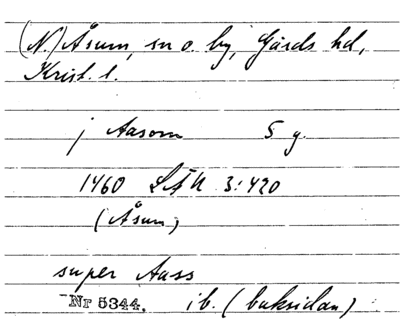 (N.) Åsum, sn o. by, Gärds hd,
Krist. l.
j Aasom 5 g.
1460 LÄU 3:420
(Åsum)
super Aass
Nr 5344. ib. (baksidan)